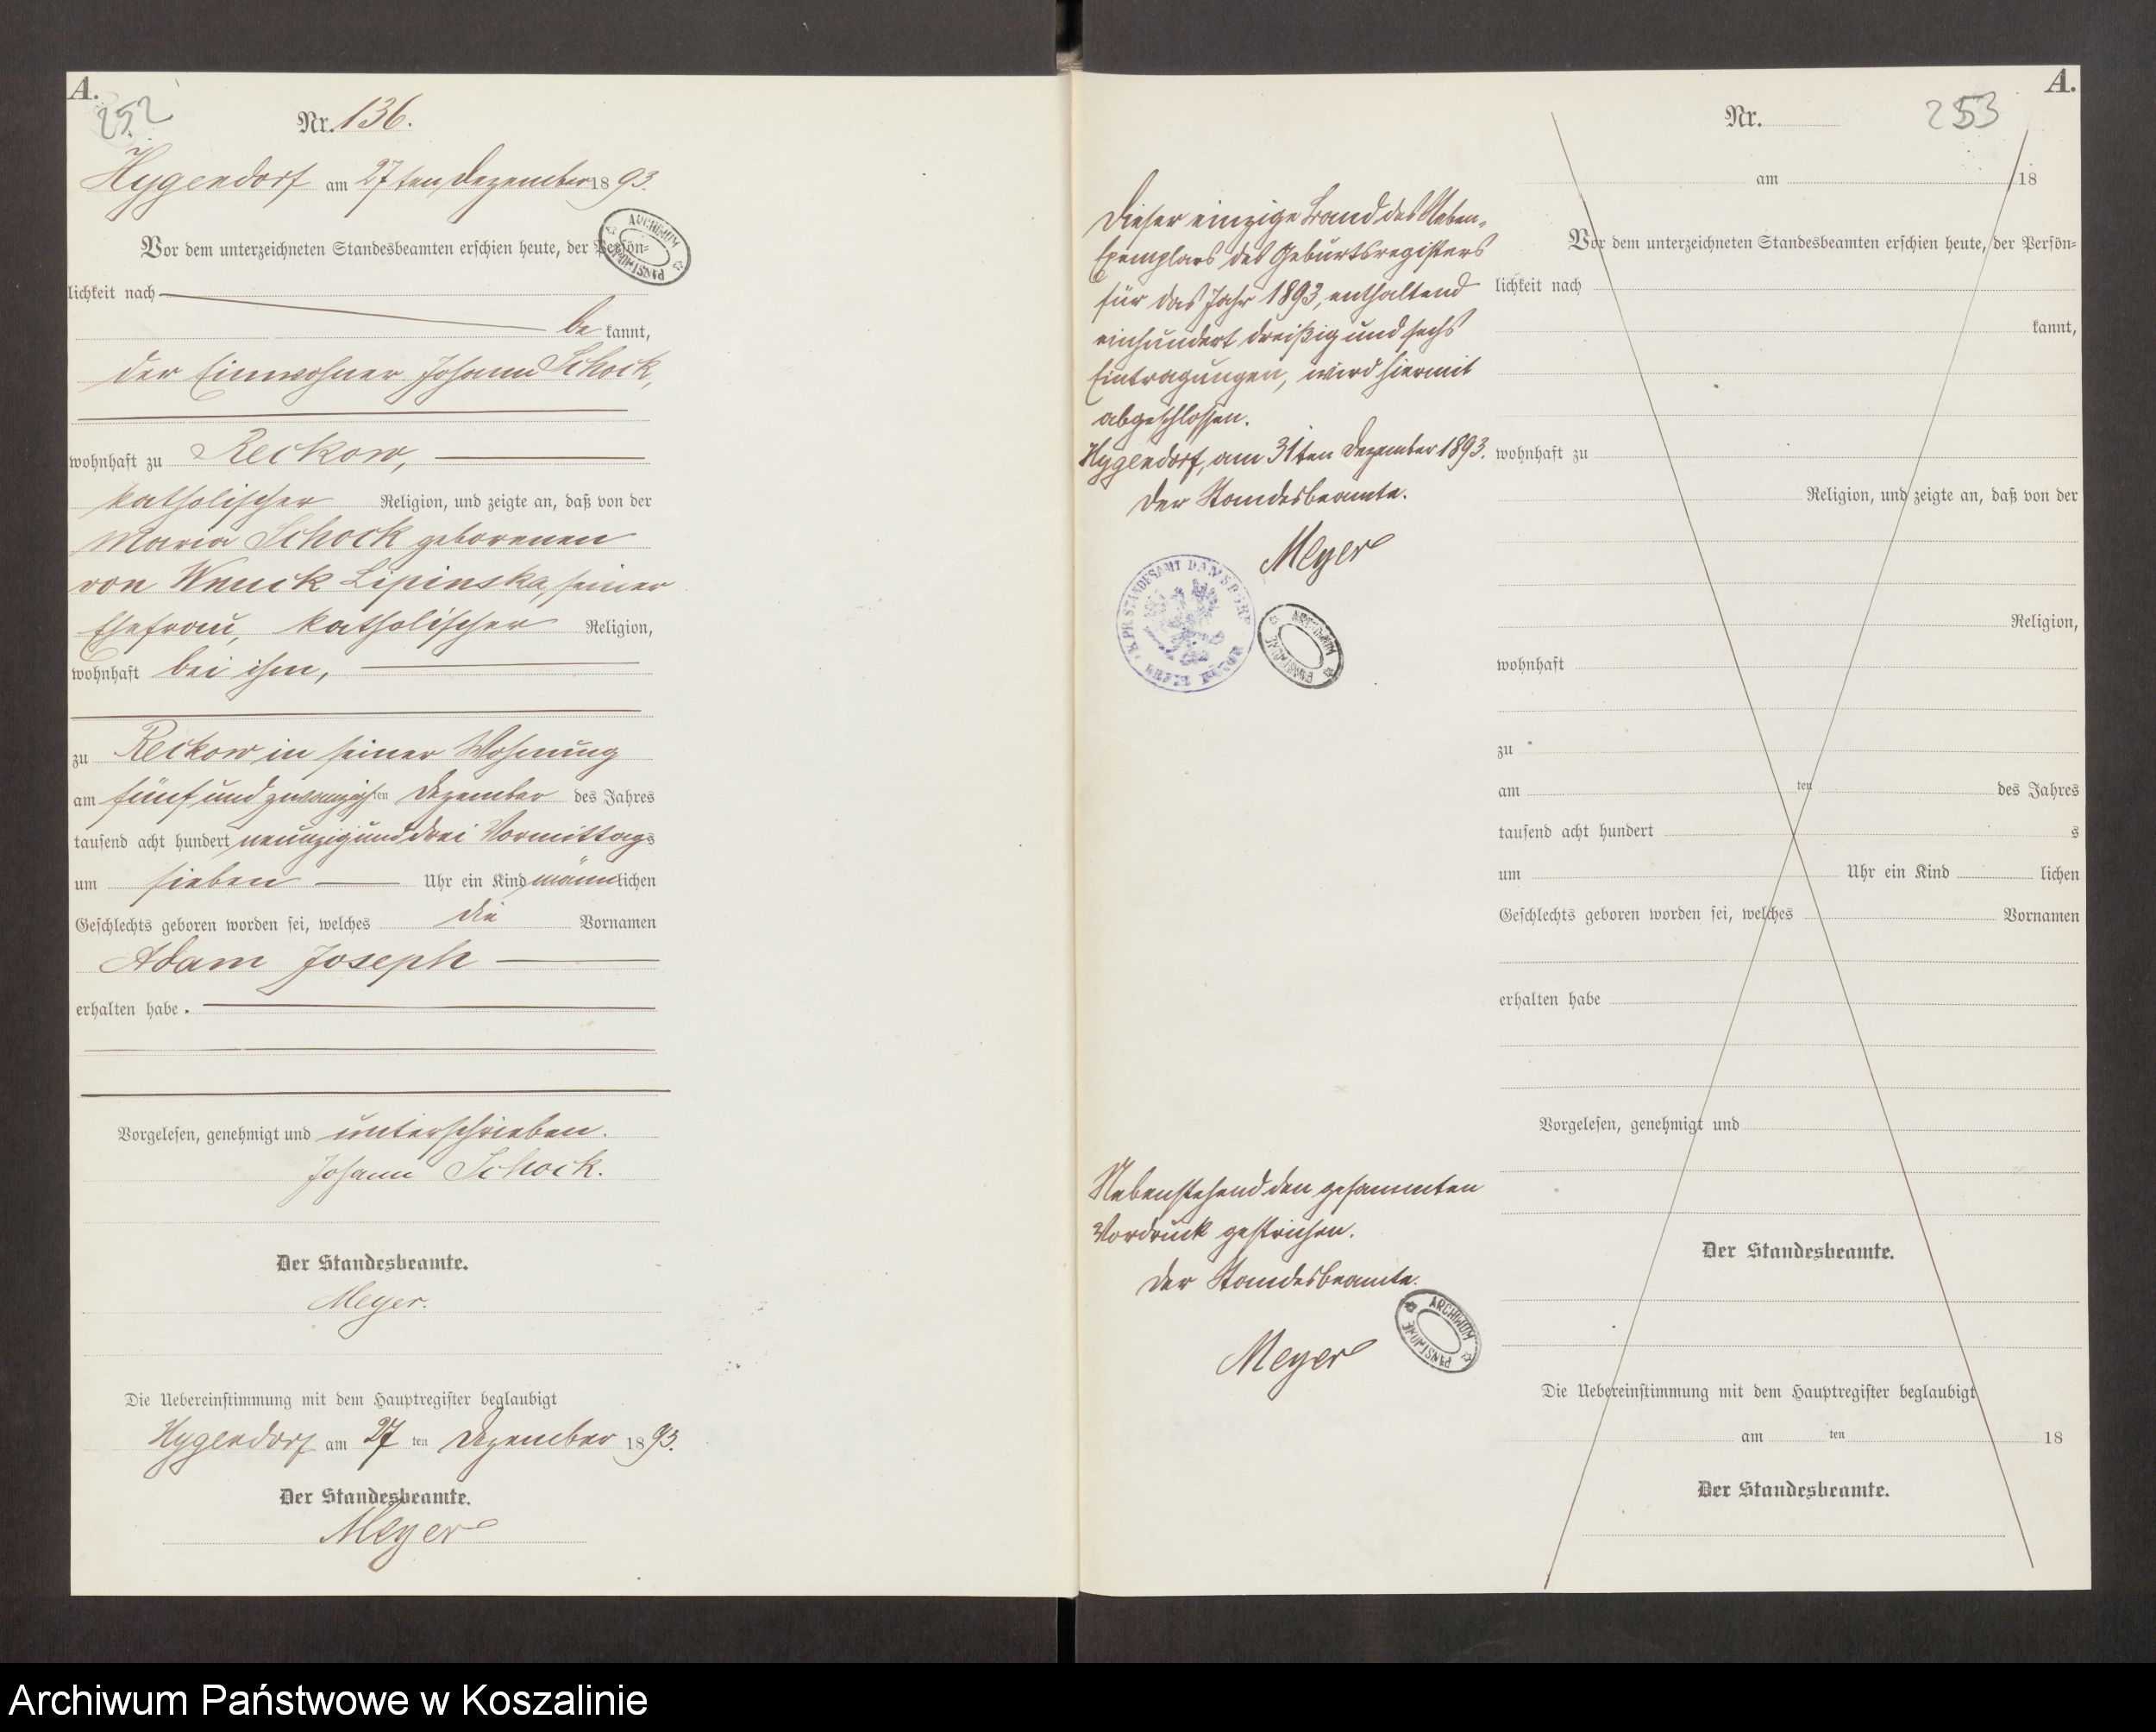 A.
252
Nr. 136.
Hygendorf am 27ten Dezember 1893.
Vor dem unterzeichneten Standesbeamten erschien heute, der Persön-
lichkeit nach
be kannt,
der Einwohner Johann Schock,
wohnhaft zu Reckow,
katholischer Religion, und zeigte an, daß von der
Maria Schock geborenen
von Wnuck Lipinska, seiner
Ehefrau, katholischer Religion,
wohnhaft bei ihm,
zu Reckow in seiner Wohnung
am fünf und zwanzigsten Dezember des Jahres
tausend acht hundert neunzig und drei Vormittags
um sieben Uhr ein Kind männlichen
Geschlechts geboren worden sei, welches die Vornamen
Adam Joseph
erhalten habe.
Vorgelesen, genehmigt und unterschrieben.
Johann Schock.
Der Standesbeamte.
Meyer.
Die Uebereinstimmung mit dem Hauptregister beglaubigt
Hygendorf am 27 ten Dezember 1893.
Der Standesbeamte.
Meyer
ARCHIWUM PAŃSTWOWE
Dieser einzige Band des Neben-
Exemplars des Geburtsregisters
für das Jahr 1893, enthaltend
einhundert dreißig und sechs
Eintragungen, wird hiermit
abgeschlossen.
Hygendorf, am 31ten Dezember 1893.
Der Standesbeamte.
Meyer
K. PR. STANDESAMT DAMSDORF
ARCHIWUM PAŃSTWOWE
Nebenstehend den gesammten
Vordruck gestrichen.
Der Standesbeamte.
Meyer
ARCHIWUM PAŃSTWOWE
A.
253
Nr.
am 18
Vor dem unterzeichneten Standesbeamten erschien heute, der Persön-
lichkeit nach
kannt,
wohnhaft zu
Religion, und zeigte an, daß von der
Religion,
wohnhaft
zu
am ten des Jahres
tausend acht hundert s
um Uhr ein Kind lichen
Geschlechts geboren worden sei, welches Vornamen
erhalten habe
Vorgelesen, genehmigt und
Der Standesbeamte.
Die Uebereinstimmung mit dem Hauptregister beglaubigt
am ten 18
Der Standesbeamte.
Archiwum Państwowe w Koszalinie